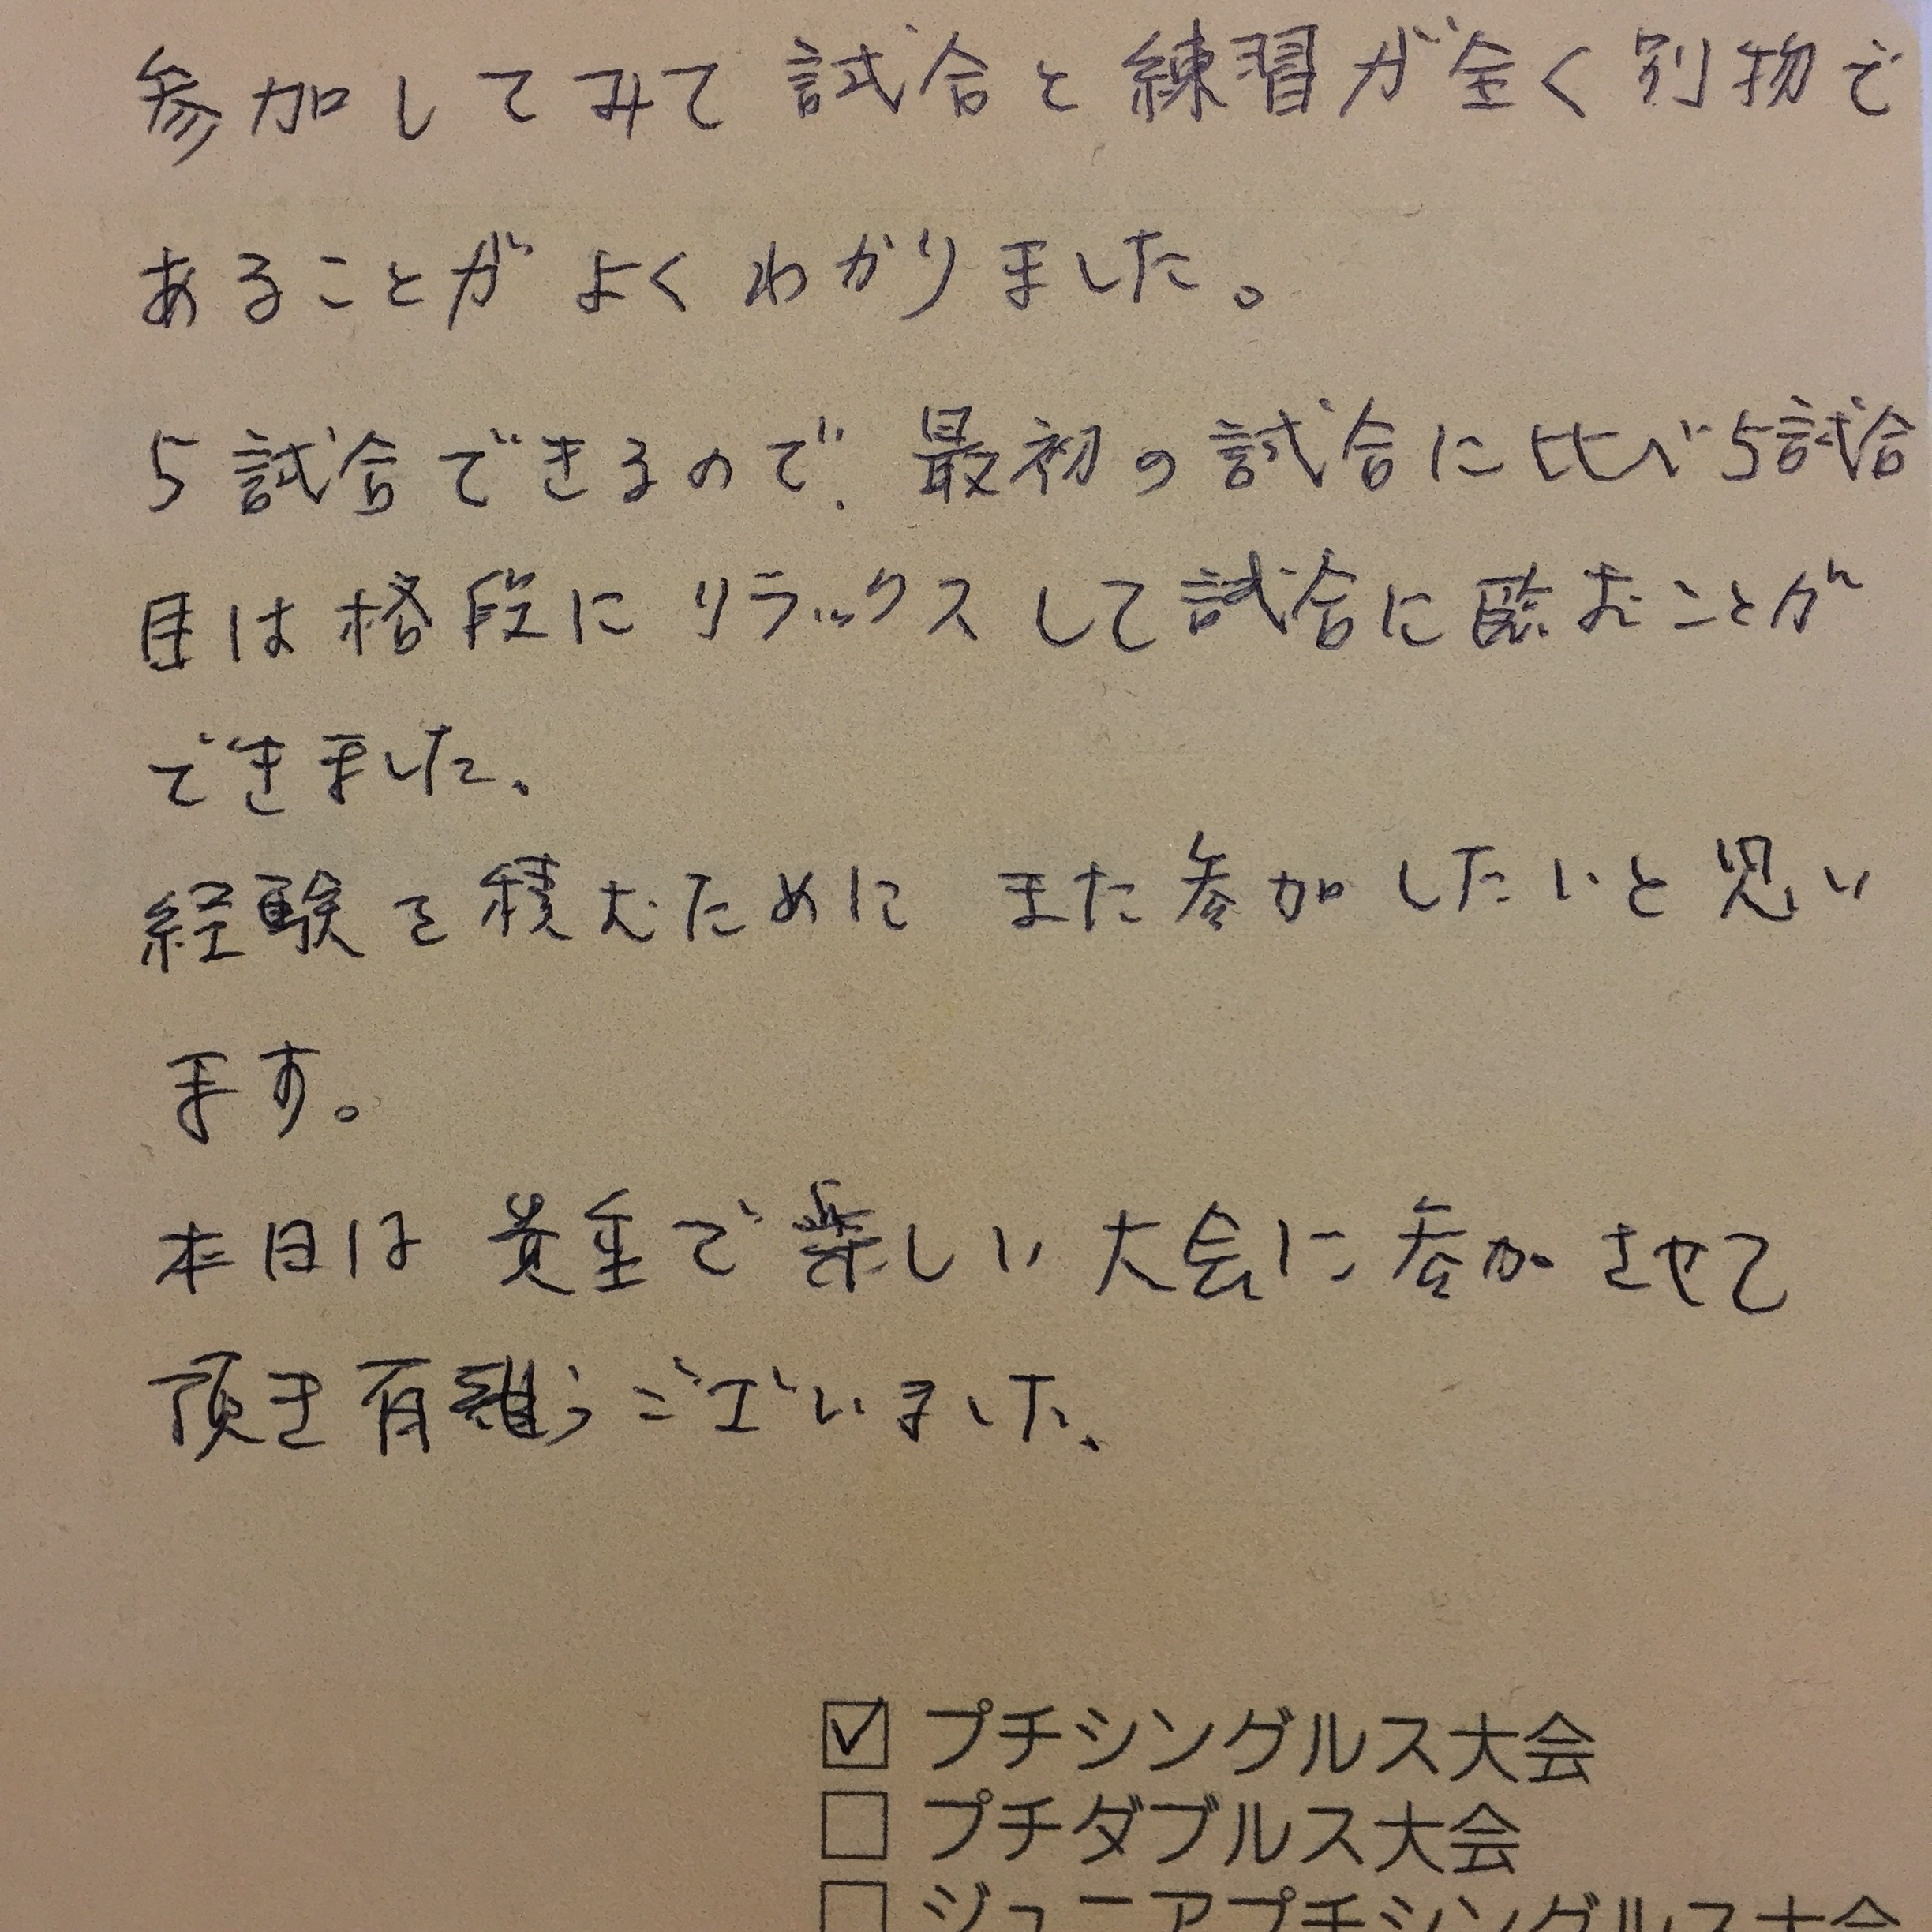 参加してみて試合と練習が全く別物で
あることがよくわかりました。
5試合できるので、最初の試合に比べ5試合
目は格段にリラックスして試合に臨むことが
できました、
経験を積むためにまた参加したいと思い
ます。
本日は貴重で楽しい大会に参加させて
頂き有難うございました、
☑ プチシングルス大会
☐ プチダブルス大会
☐ ジュニアプチシングルス大会